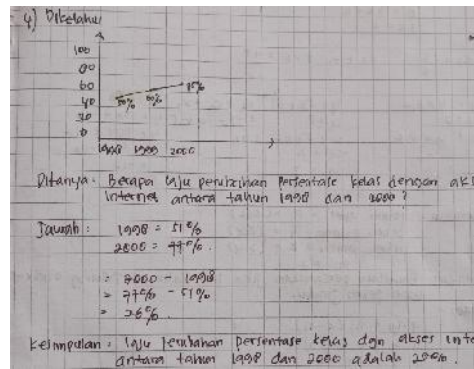 4) Diketahui
100
80
60
40
20
0
50% 60% 77%
1998 1999 2000
Ditanya : Berapa laju perubahan persentase kelas dengan aks
internet antara tahun 1998 dan 2000 ?
Jawab : 1998 = 51%
2000 = 77%.
= 2000 - 1998
= 77% - 51%
= 26%.
Kesimpulan : laju perubahan persentase kelas dgn akses inte
antara tahun 1998 dan 2000 adalah 26%.